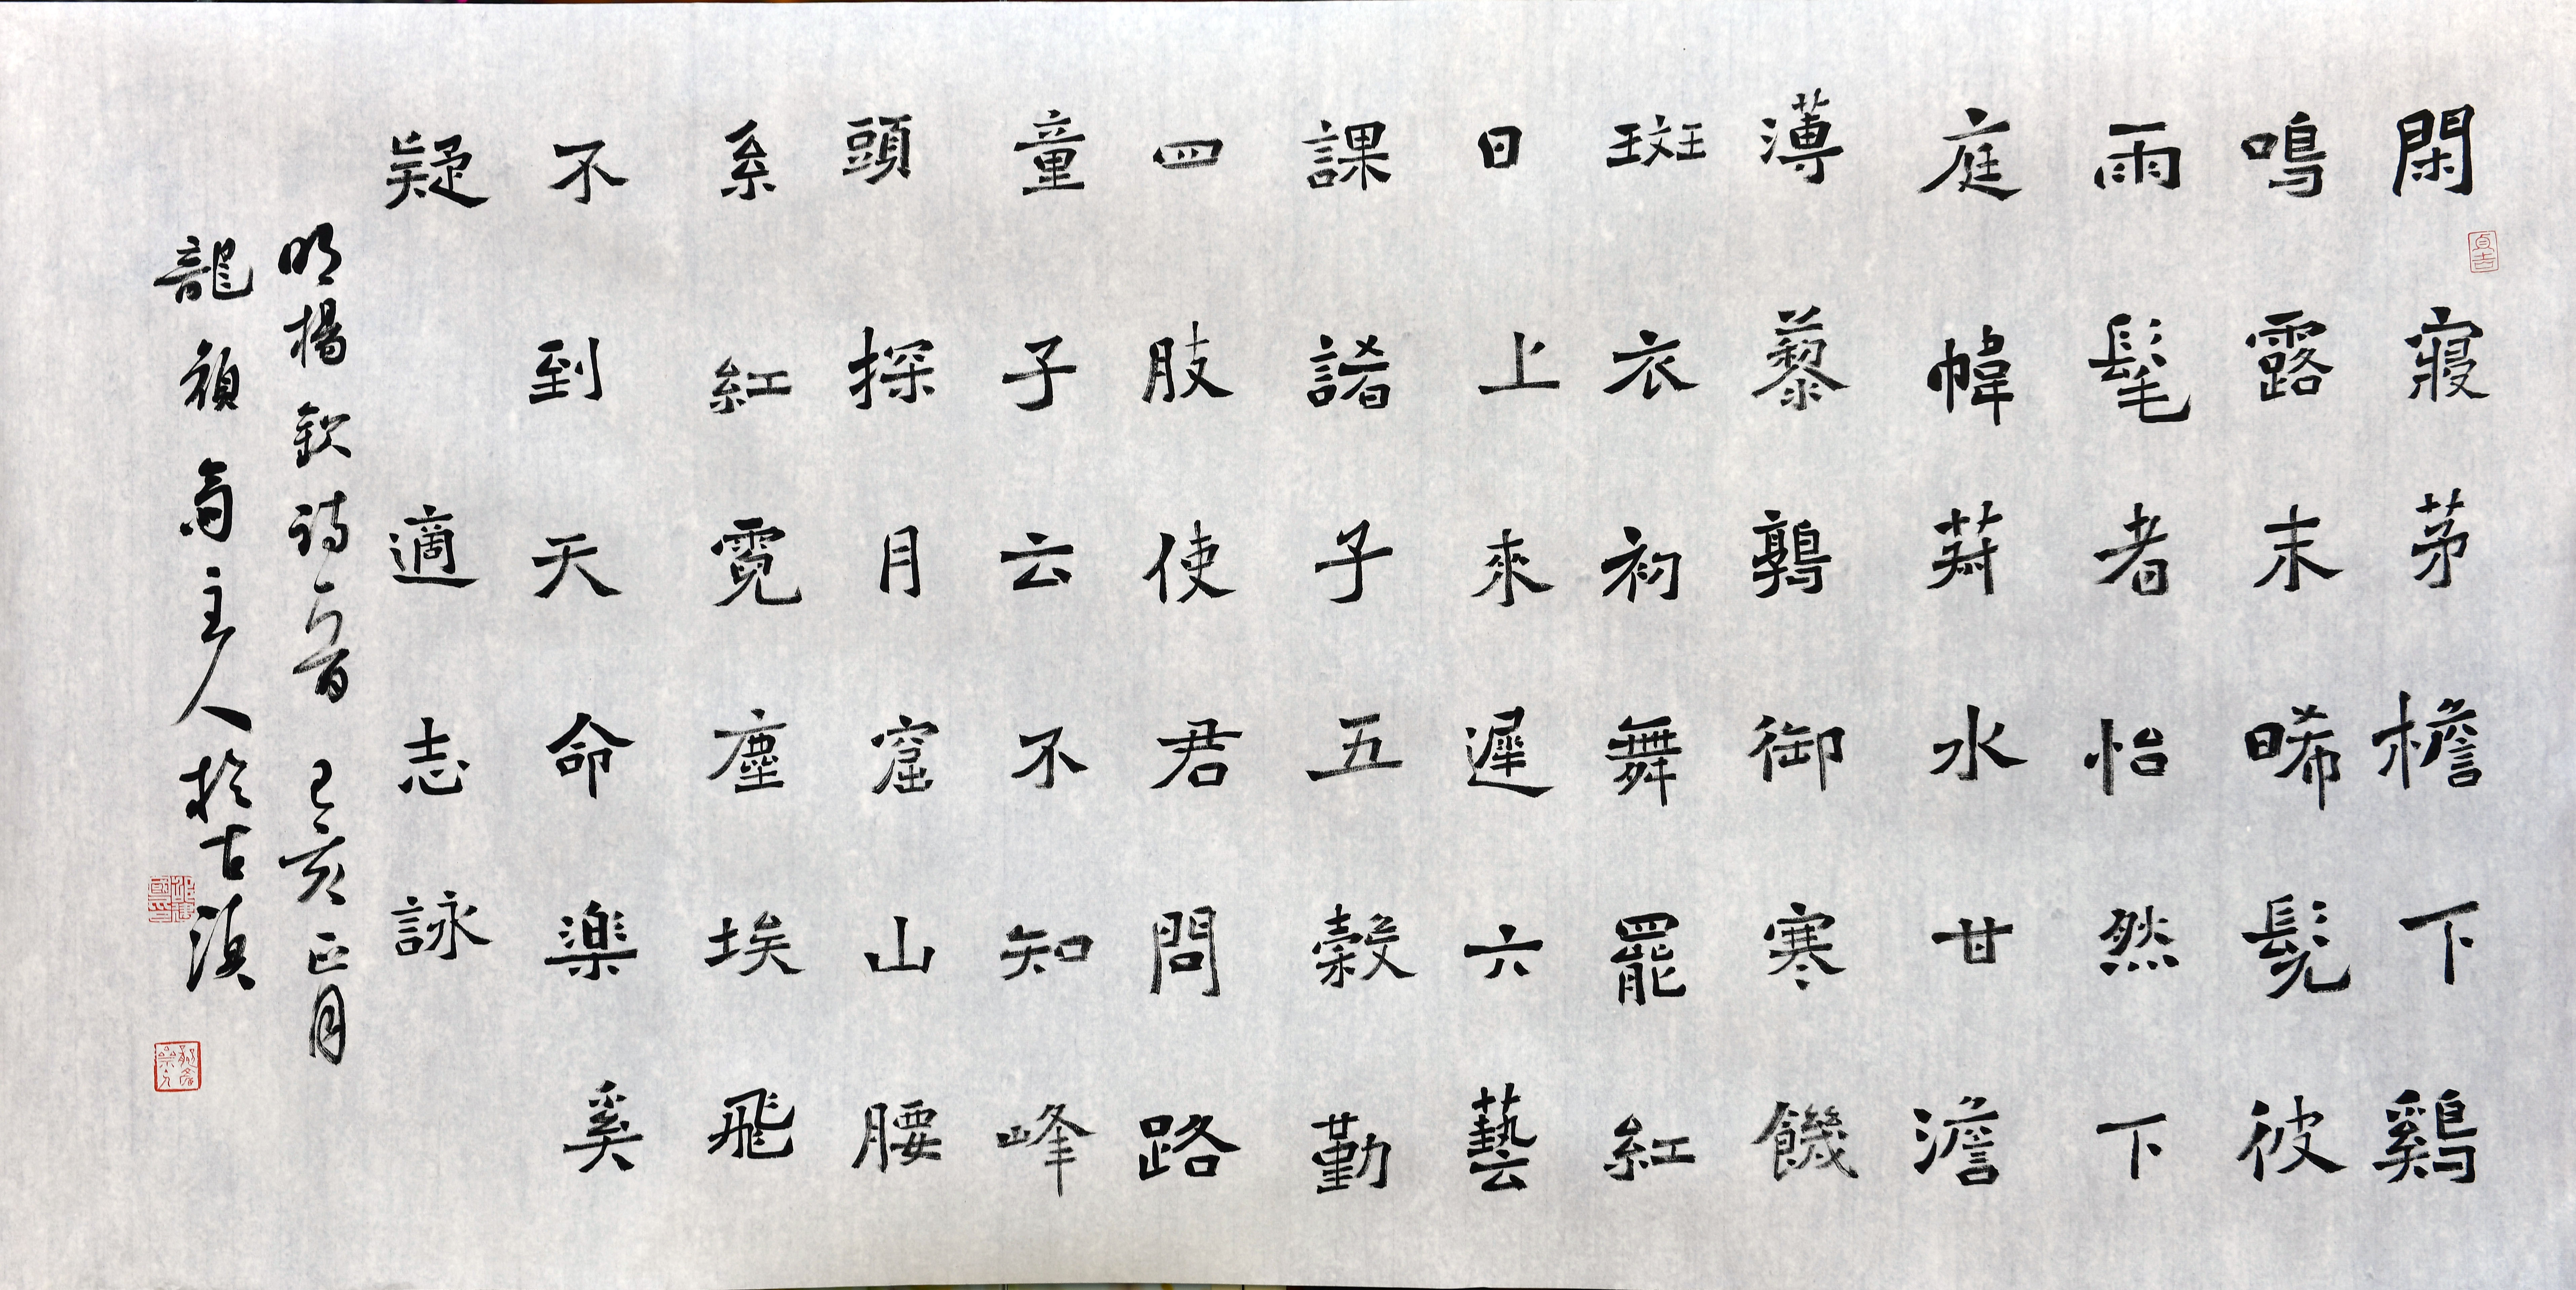 閑寢茅檐下鷄
鳴露末晞髡彼
雨髦者怡然下
庭幃菽水甘澹
薄藜鶉御寒饑
斑衣初舞罷紅
日上來遲六藝
課諸子五榖勤
四肢使君問路
童子云不知峰
頭探月窟山腰
系紅霓塵埃飛
不到天命楽奚
疑適志詠
明楊欽詩一首己亥正月
龍須齋主人於古滇